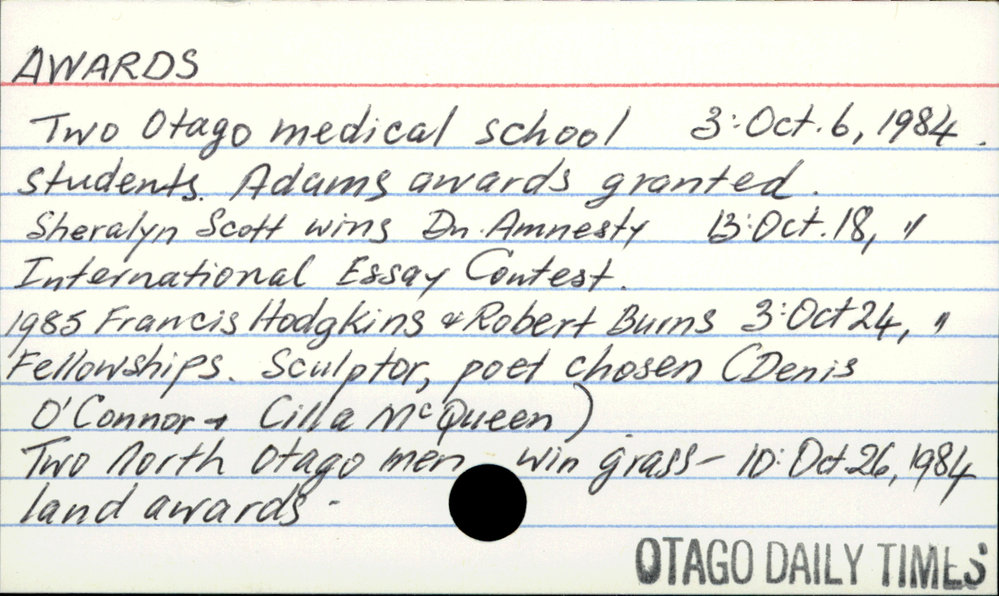 AWARDS
Two Otago medical school 3:Oct.6, 1984.
students. Adams awards granted.
Sheralyn Scott wins Dn. Amnesty 13:Oct.18, "
International Essay Contest.
1985 Francis Hodgkins & Robert Burns 3:Oct 24, "
Fellowships. Sculptor, poet chosen (Denis
O'Connor + Cilla McQueen)
Two North Otago men win grass- 10:Oct 26, 1984
land awards-
OTAGO DAILY TIMES